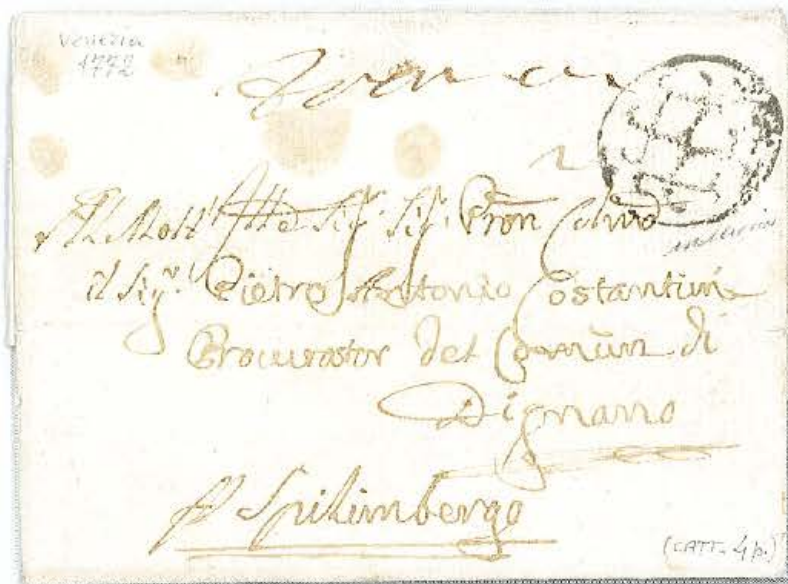 Venezia
1772
Franca
All Molt' Ill.e Sig.r Sig.r Pron Colmo
il Sig.r Pietro Antonio Costantini
Procurator del Comun di
Dignano
P Spilimbergo
(CATT. 4 p.)